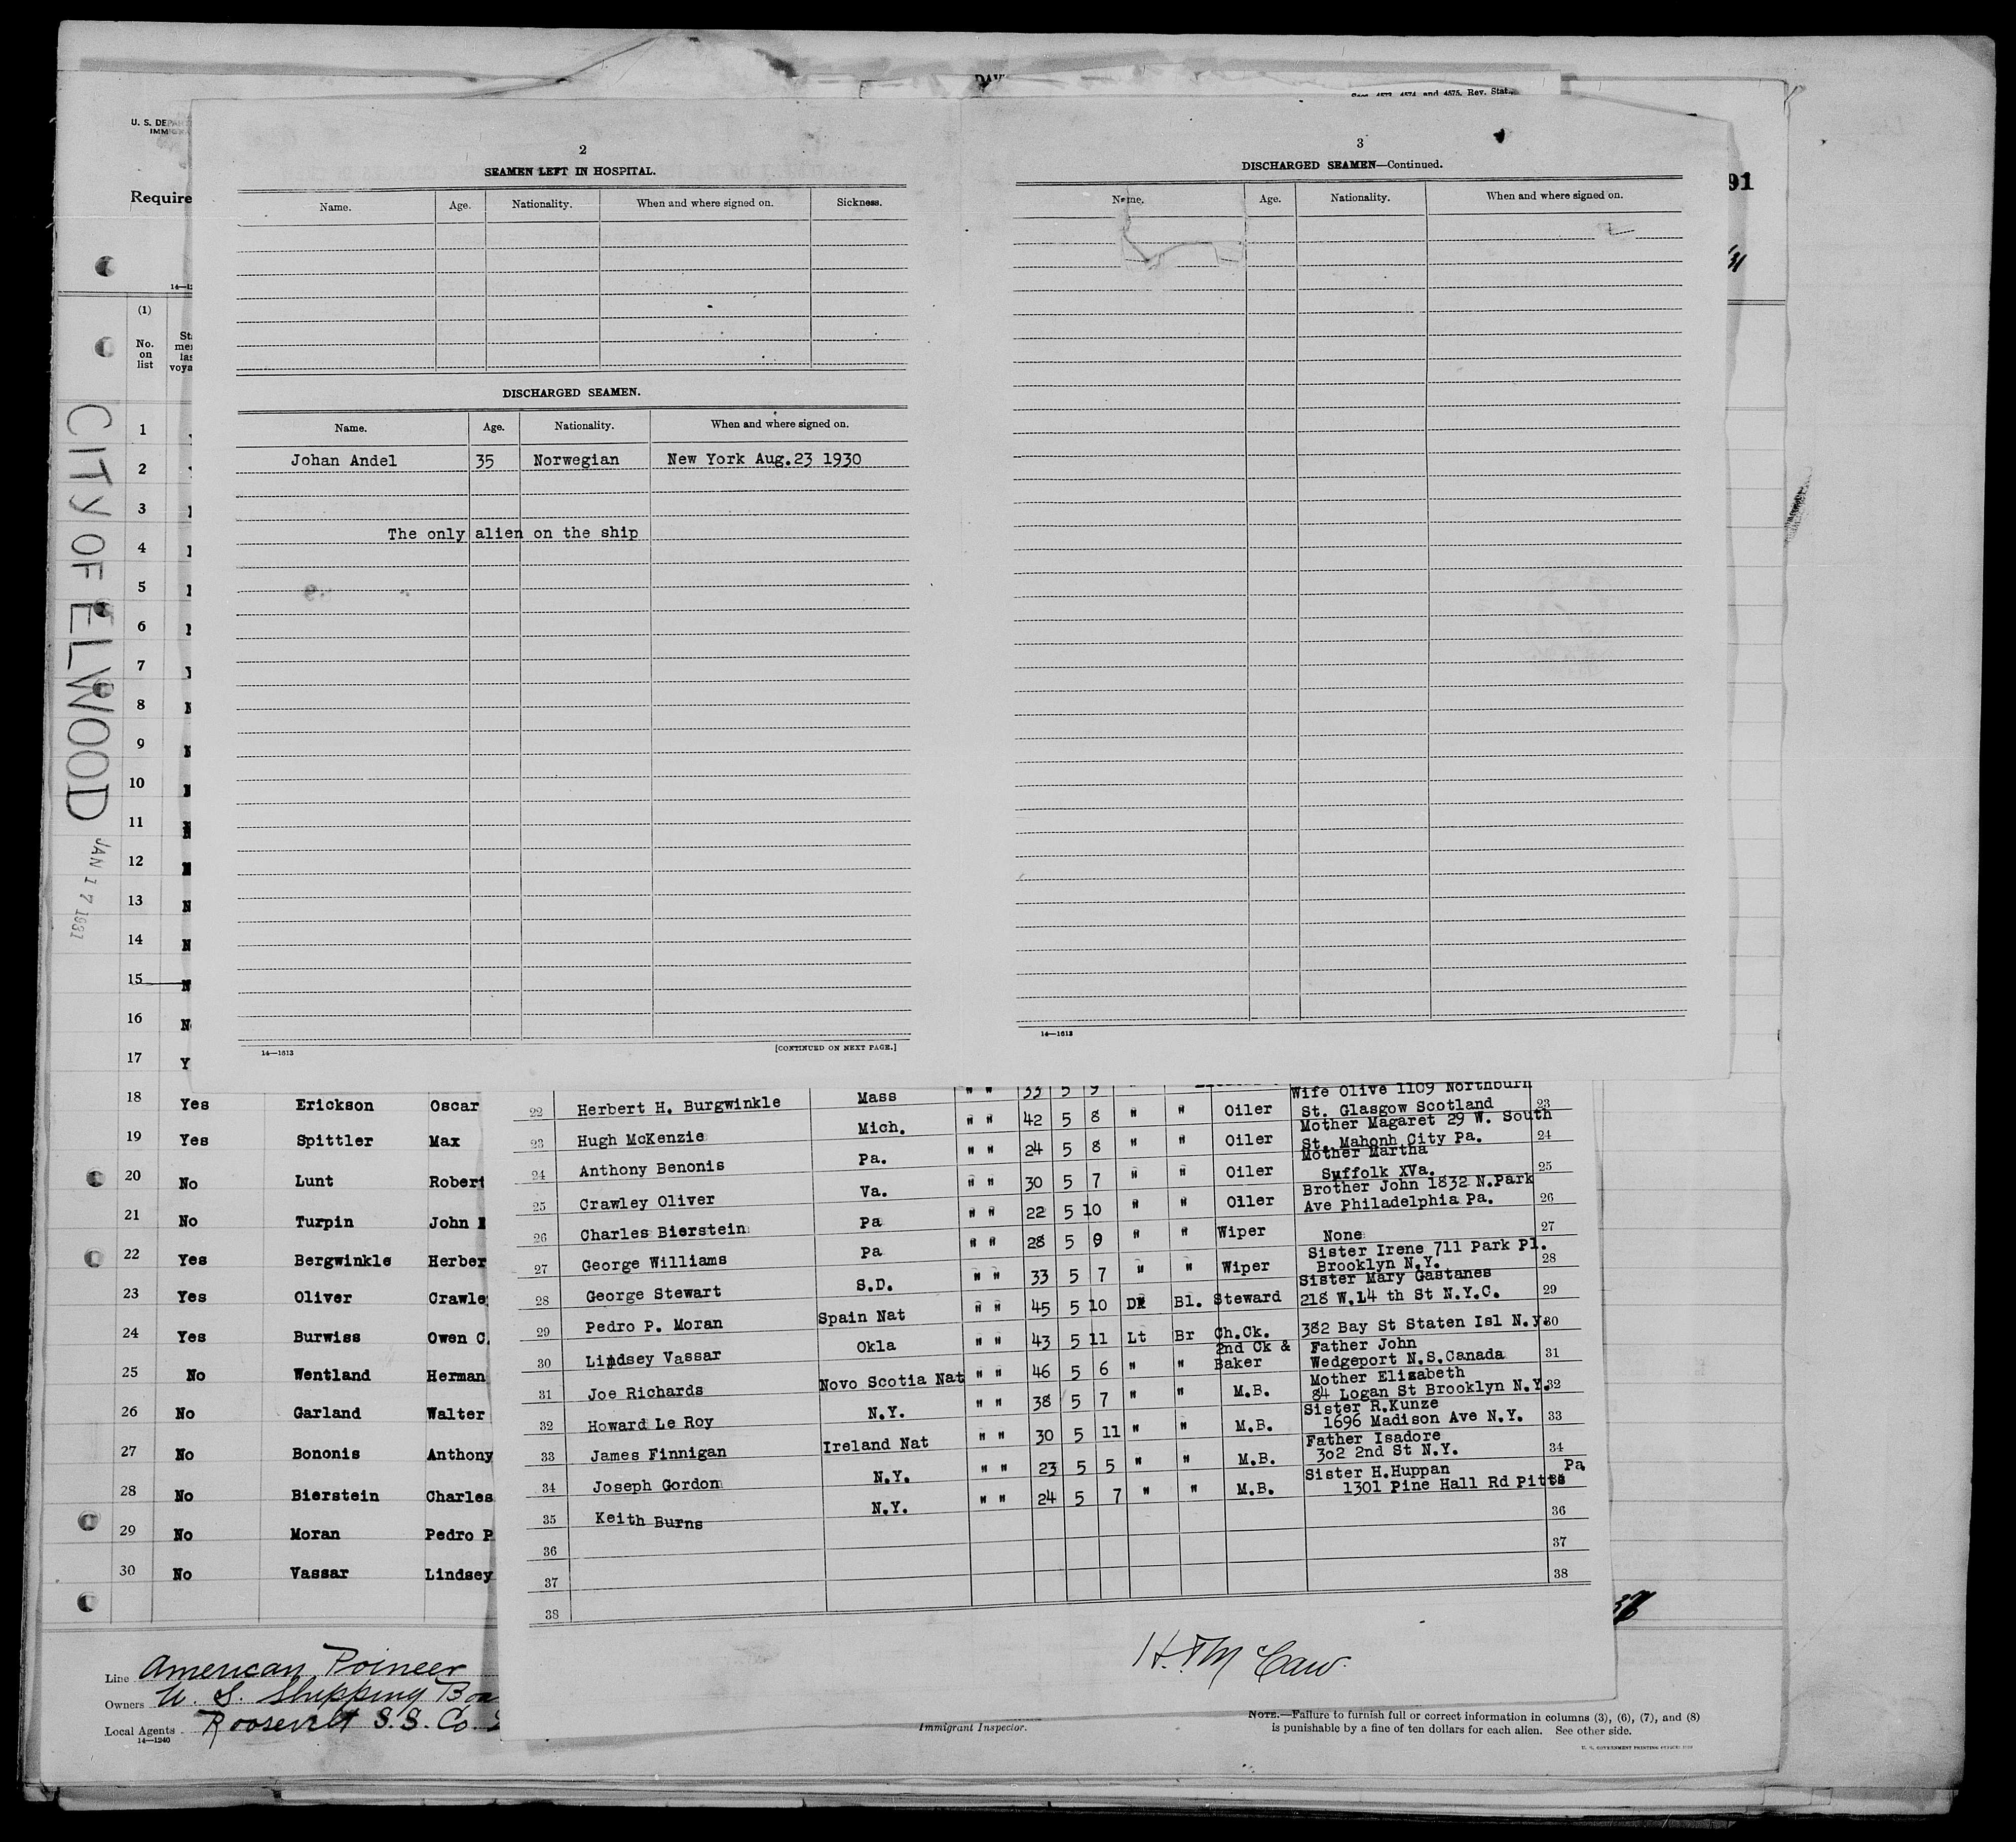 DAV
Secs. 4573, 4574, and 4575, Rev. Stat.
U. S. DEPAR
IMMIGRA
Require
91
14—12
31
(1)
No. on list
CITY OF ELWOOD
JAN 17 1931
2
SEAMEN LEFT IN HOSPITAL.
Name. Age. Nationality. When and where signed on. Sickness.
DISCHARGED SEAMEN.
Name. Age. Nationality. When and where signed on.
Johan Andel 35 Norwegian New York Aug.23 1930
The only alien on the ship
14—1613 [CONTINUED ON NEXT PAGE.]
3
DISCHARGED SEAMEN—Continued.
Name. Age. Nationality. When and where signed on.
14—1613
1
2
3
4
5
6
7
8
9
10
11
12
13
14
15
16
17 Y
18 Yes Erickson Oscar
19 Yes Spittler Max
20 No Lunt Robert
21 No Turpin John
22 Yes Bergwinkle Herber
23 Yes Oliver Crawle
24 Yes Burwiss Owen C.
25 No Wentland Herman
26 No Garland Walter
27 No Bononis Anthony
28 No Bierstein Charles
29 No Moran Pedro P
30 No Vassar Lindsey
22 Herbert H. Burgwinkle Mass " " 33 5 9 "
23 Hugh McKenzie Mich. " " 42 5 8 " " Oiler Wife Olive 1109 Northburn St. Glasgow Scotland 23
24 Anthony Benonis Pa. " " 24 5 8 " " Oiler Mother Magaret 29 W. South St. Mahonh City Pa. 24
25 Crawley Oliver Va. " " 30 5 7 " " Oiler Mother Martha Suffolk XVa. 25
26 Charles Bierstein Pa " " 22 5 10 " " Oiler Brother John 1832 N.Park Ave Philadelphia Pa. 26
27 George Williams Pa " " 28 5 9 " " Wiper None 27
28 George Stewart S.D. " " 33 5 7 " " Wiper Sister Irene 711 Park Pl. Brooklyn N.Y. 28
29 Pedro P. Moran Spain Nat " " 45 5 10 DK Bl. Steward Sister Mary Gastanes 218 W.14 th St N.Y.C. 29
30 Lindsey Vassar Okla " " 43 5 11 Lt Br Ch.Ck. 382 Bay St Staten Isl N.y. 30
31 Joe Richards Novo Scotia Nat " " 46 5 6 " " 2nd Ck & Baker Father John Wedgeport N.S.Canada 31
32 Howard Le Roy N.Y. " " 38 5 7 " " M.B. Mother Elizabeth 84 Logan St Brooklyn N.Y. 32
33 James Finnigan Ireland Nat " " 30 5 11 " " M.B. Sister R.Kunze 1696 Madison Ave N.Y. 33
34 Joseph Gordon N.Y. " " 23 5 5 " " M.B. Father Isadore 302 2nd St N.Y. 34
35 Keith Burns N.Y. " " 24 5 7 " " M.B. Sister H.Huppan 1301 Pine Hall Rd Pitts Pa
36 36
37 37
38 38
H. F. McCaw.
Line American Poineer
Owners U. S. Shipping Boa
Local Agents Roosevelt S.S. Co.
14—1240
Immigrant Inspector.
NOTE.—Failure to furnish full or correct information in columns (3), (6), (7), and (8)
is punishable by a fine of ten dollars for each alien. See other side.
U. S. GOVERNMENT PRINTING OFFICE